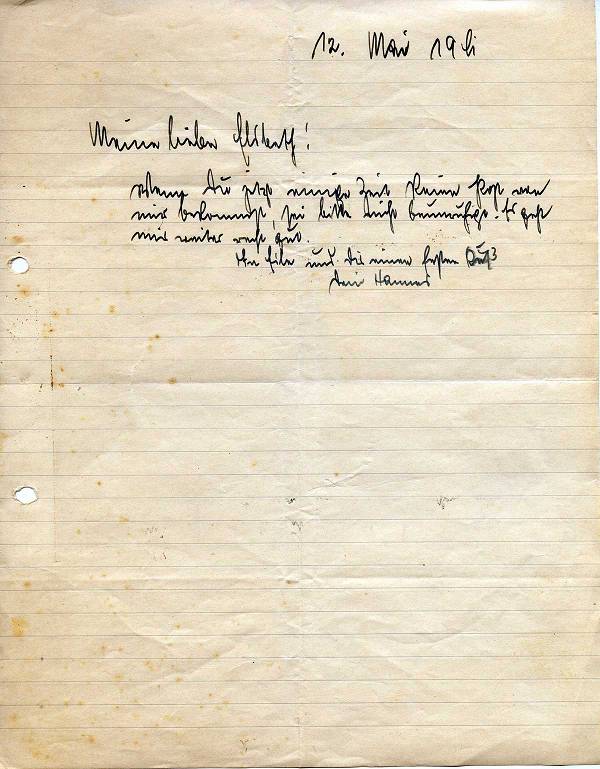 12. Mai 1941
Meine liebe Elsbeth!
Wenn Du jetzt einige Zeit keine Post von
mir bekommst, sei bitte nicht beunruhigt. Es geht
mir weiter recht gut.
In Eile und Dir einen festen Kuß
Dein Hannes